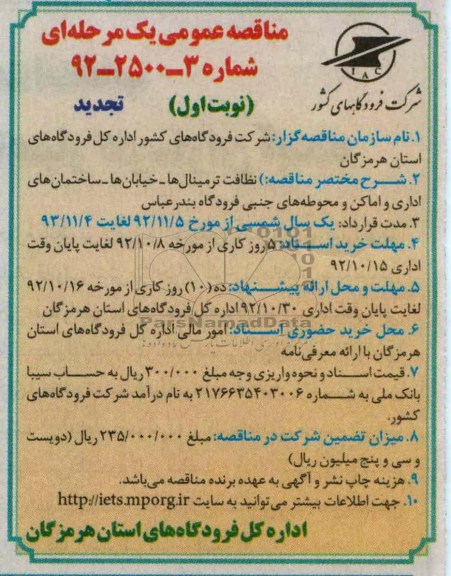 مناقصه عمومی یک مرحله‌ای
شماره ۳-۲۵۰۰-۹۲
(نوبت اول) تجدید
IAC
شرکت فرودگاههای کشور
۱. نام سازمان مناقصه‌گزار: شرکت فرودگاه‌های کشور اداره کل فرودگاه‌های
استان هرمزگان
۲. شرح مختصر مناقصه:) نظافت ترمینال‌ها - خیابان‌ها - ساختمان‌های
اداری و اماکن و محوطه‌های جنبی فرودگاه بندرعباس
۳. مدت قرارداد: یک سال شمسی از مورخ ۹۲/۱۱/۵ لغایت ۹۳/۱۱/۴
۴. مهلت خرید اسناد: ۵ روز کاری از مورخه ۹۲/۱۰/۸ لغایت پایان وقت
اداری ۹۲/۱۰/۱۵
۵. مهلت و محل ارائه پیشنهاد: ده (۱۰) روز کاری از مورخه ۹۲/۱۰/۱۶
لغایت پایان وقت اداری ۹۲/۱۰/۳۰ اداره کل فرودگاه‌های استان هرمزگان
۶. محل خرید حضوری اسناد: امور مالی اداره کل فرودگاه‌های استان
هرمزگان با ارائه معرفی‌نامه
۷. قیمت اسناد و نحوه واریزی وجه مبلغ ۳۰۰/۰۰۰ ریال به حساب سیبا
بانک ملی به شماره ۲۱۷۶۶۳۵۴۰۳۰۰۶ به نام درآمد شرکت فرودگاه‌های
کشور.
۸. میزان تضمین شرکت در مناقصه: مبلغ ۲۳۵/۰۰۰/۰۰۰ ریال (دویست
و سی و پنج میلیون ریال)
۹. هزینه چاپ نشر و آگهی به عهده برنده مناقصه می‌باشد.
۱۰. جهت اطلاعات بیشتر می‌توانید به سایت http://iets.mporg.ir
اداره کل فرودگاه‌های استان هرمزگان
ParsNamadData